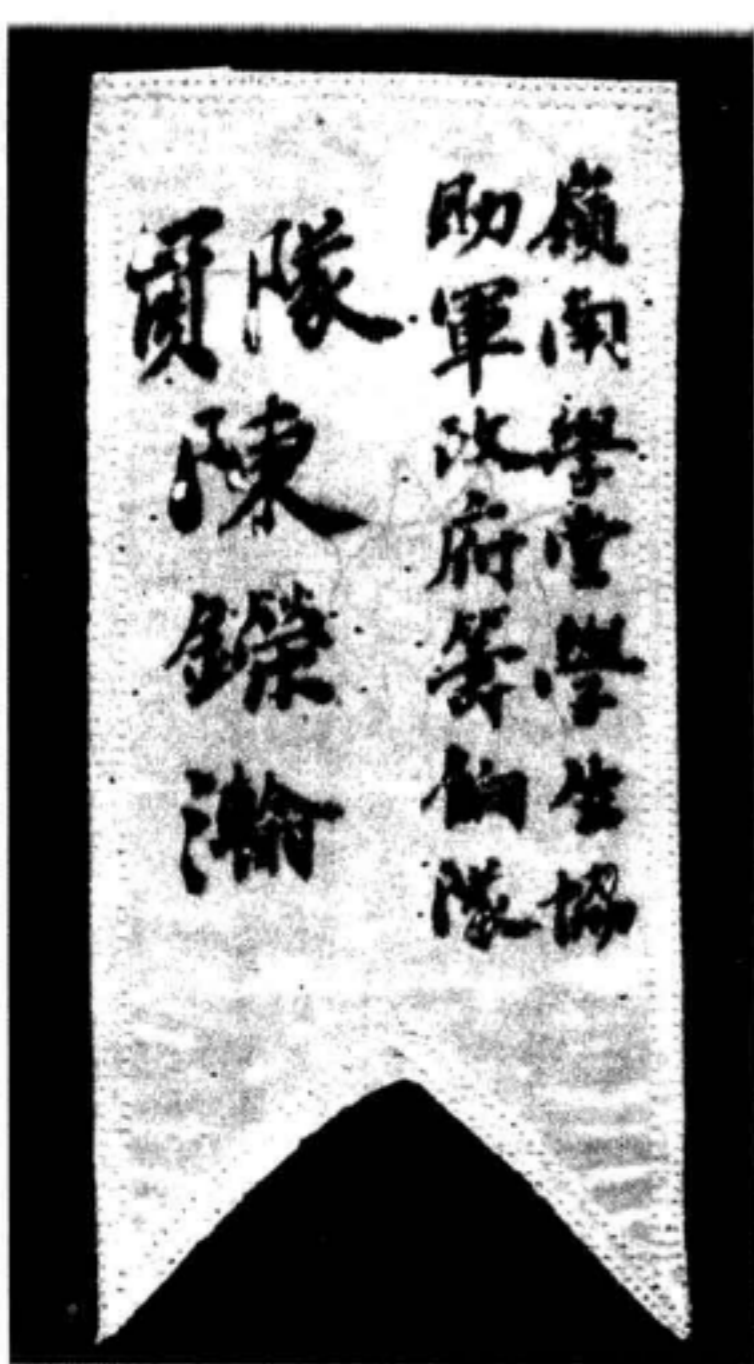 嶺南學堂學生協
助軍政府籌餉隊
隊員
陳鑅瀚